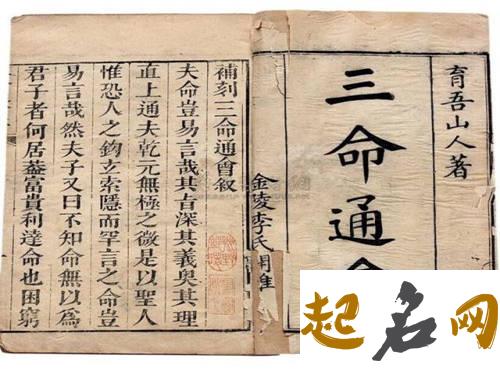 育吾山人著
三命通
金陵李氏
補刻三命通會叙
夫命豈易言哉其旨深其義奥其理
直上通夫乾元無極之微是以聖人
惟恐人之鈎玄索隱而罕言之命豈
易言哉然夫子又曰不知命無以爲
君子者何居葢富貴利達命也困窮
起名网